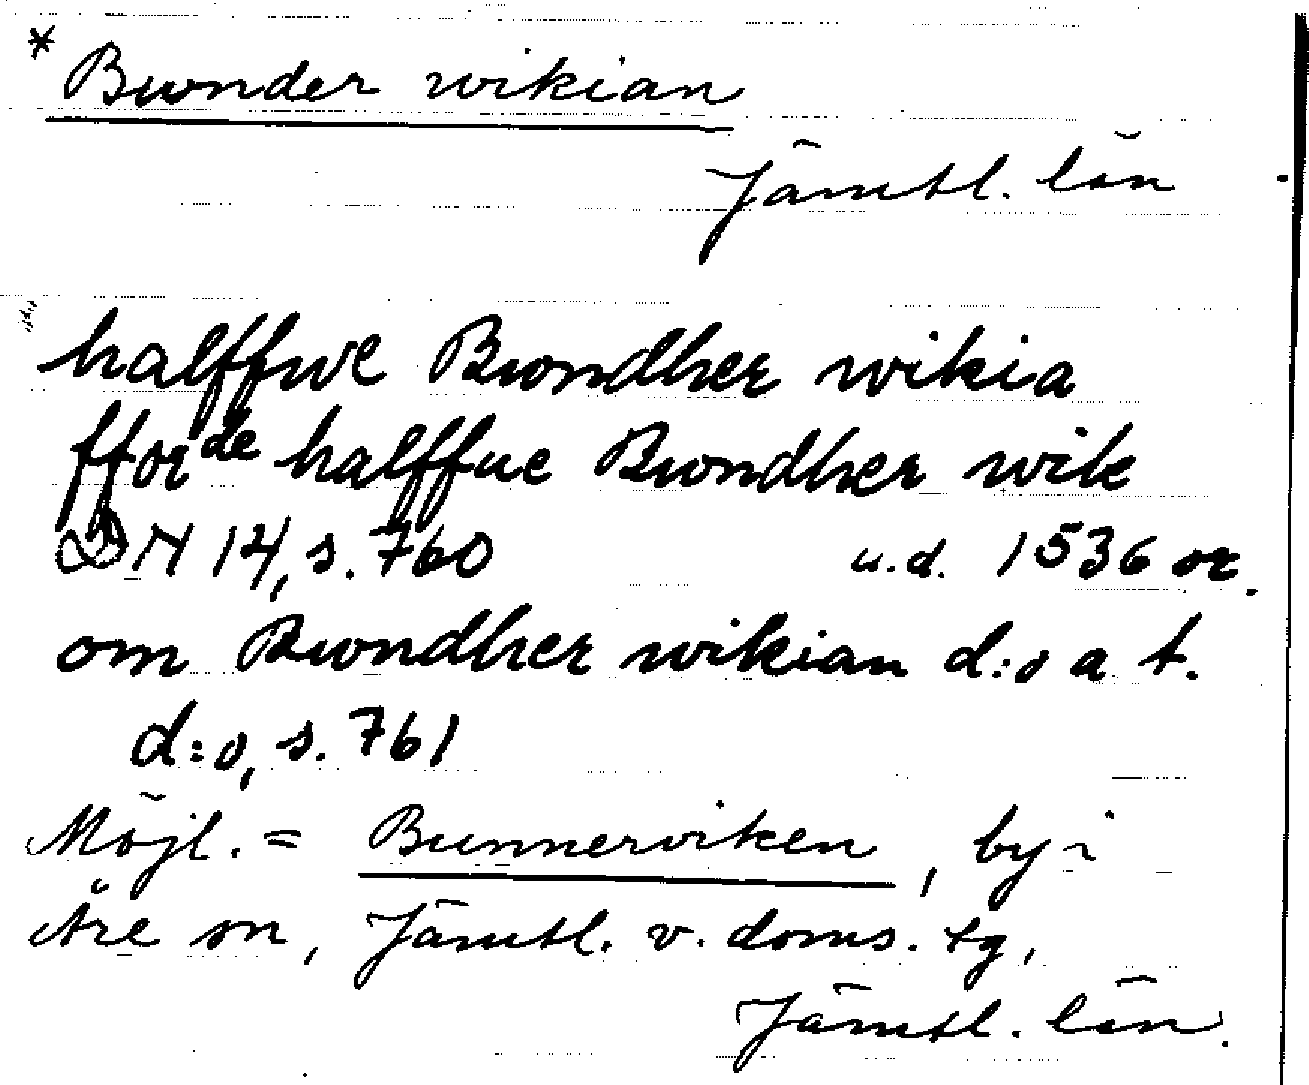 * Bwnder wikian
Jämtl. län
halffwe Bwndher wikia
fforde halffue Bwndher wik
DN 14, s. 760 u.d. 1536 or.
om Bwndher wikian d:o a. st.
d:o, s. 761
Möjl. = Bunnerviken, by i
Åre sn, Jämtl. v. doms. tg,
Jämtl. län.